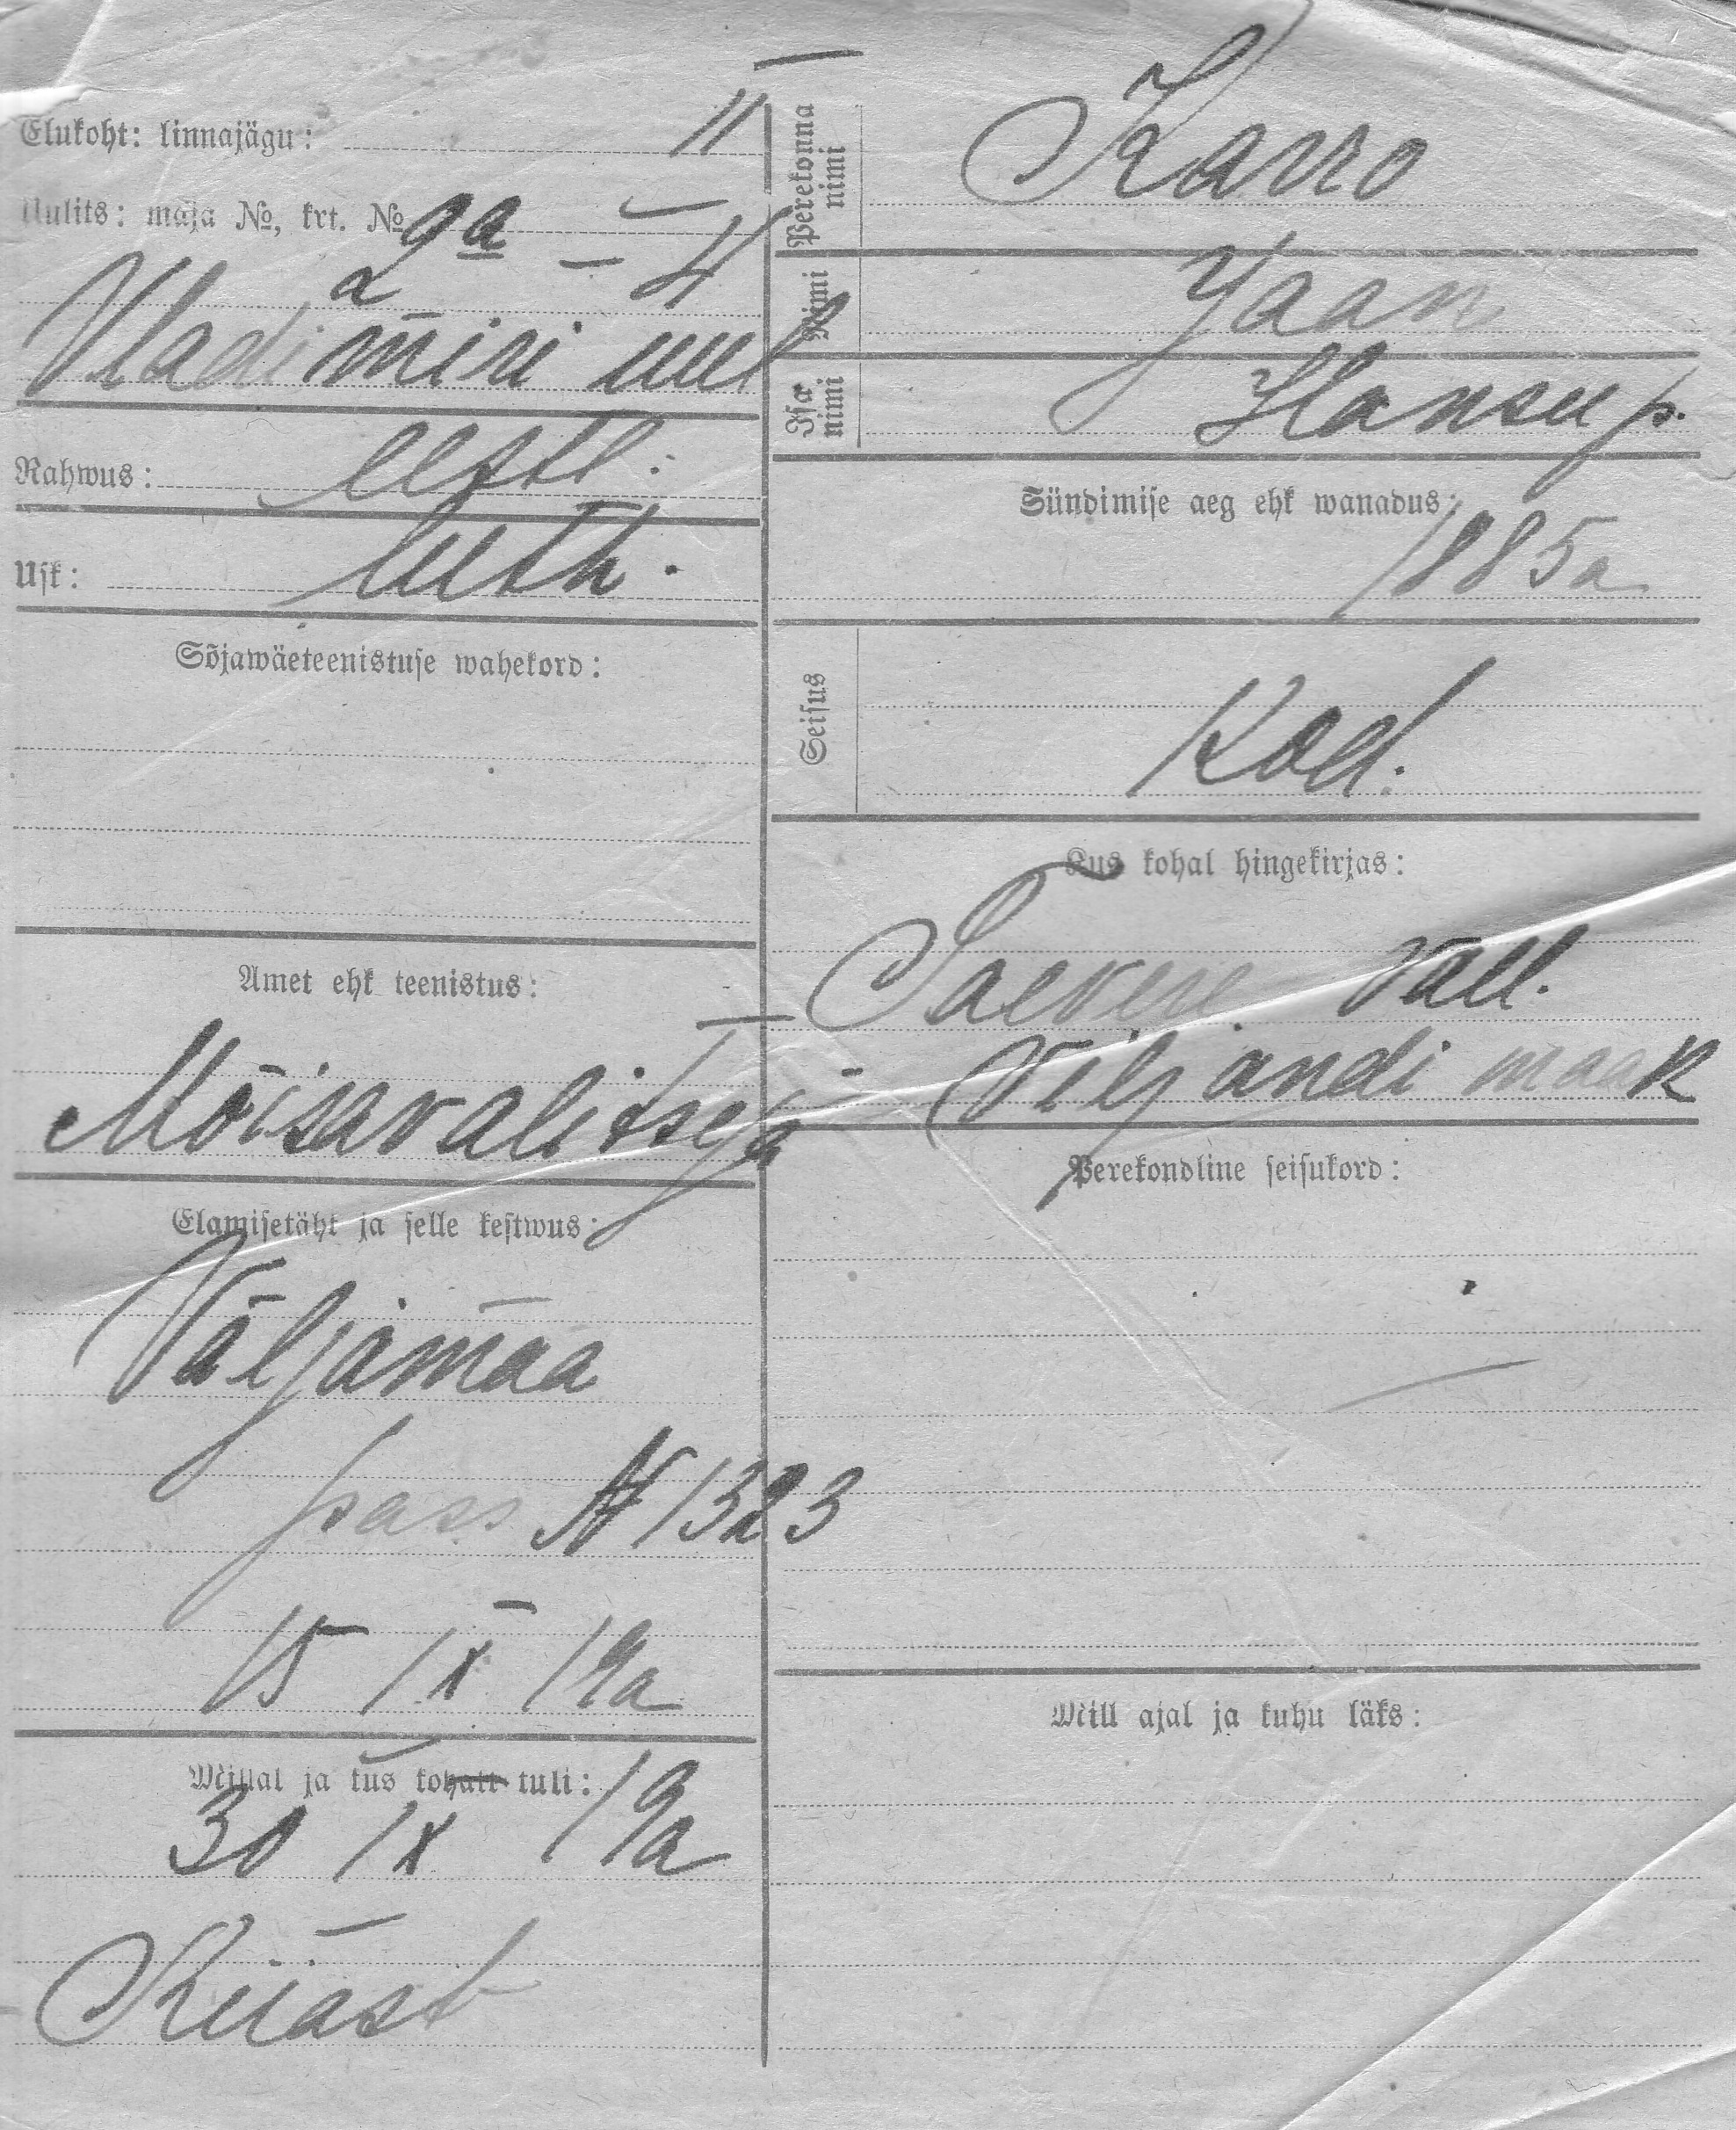 Elukoht: linnajägu: II
Uulits: maja №, krt. № 9a
2 – 4
Vladimiri uul
Rahwus: eestl.
Usk: luth.
Sõjawäeteenistuse wahekord:
Amet ehk teenistus:
Mõisavalitseja
Elamisetäht ja selle kestwus:
Väljamaa
pass N 1323
15 IX 19a
Millal ja kus kohalt tuli:
30 IX 19a
Riiast
Perekonna nimi Karro
Nimi Jaan
Isa nimi Hansu p.
Sündimise aeg ehk wanadus:
1885a
Seisus Kod.
Kus kohal hingekirjas:
Paevere vall.
Viljandi maak
Perekondline seisukord:
Mill ajal ja kuhu läks: